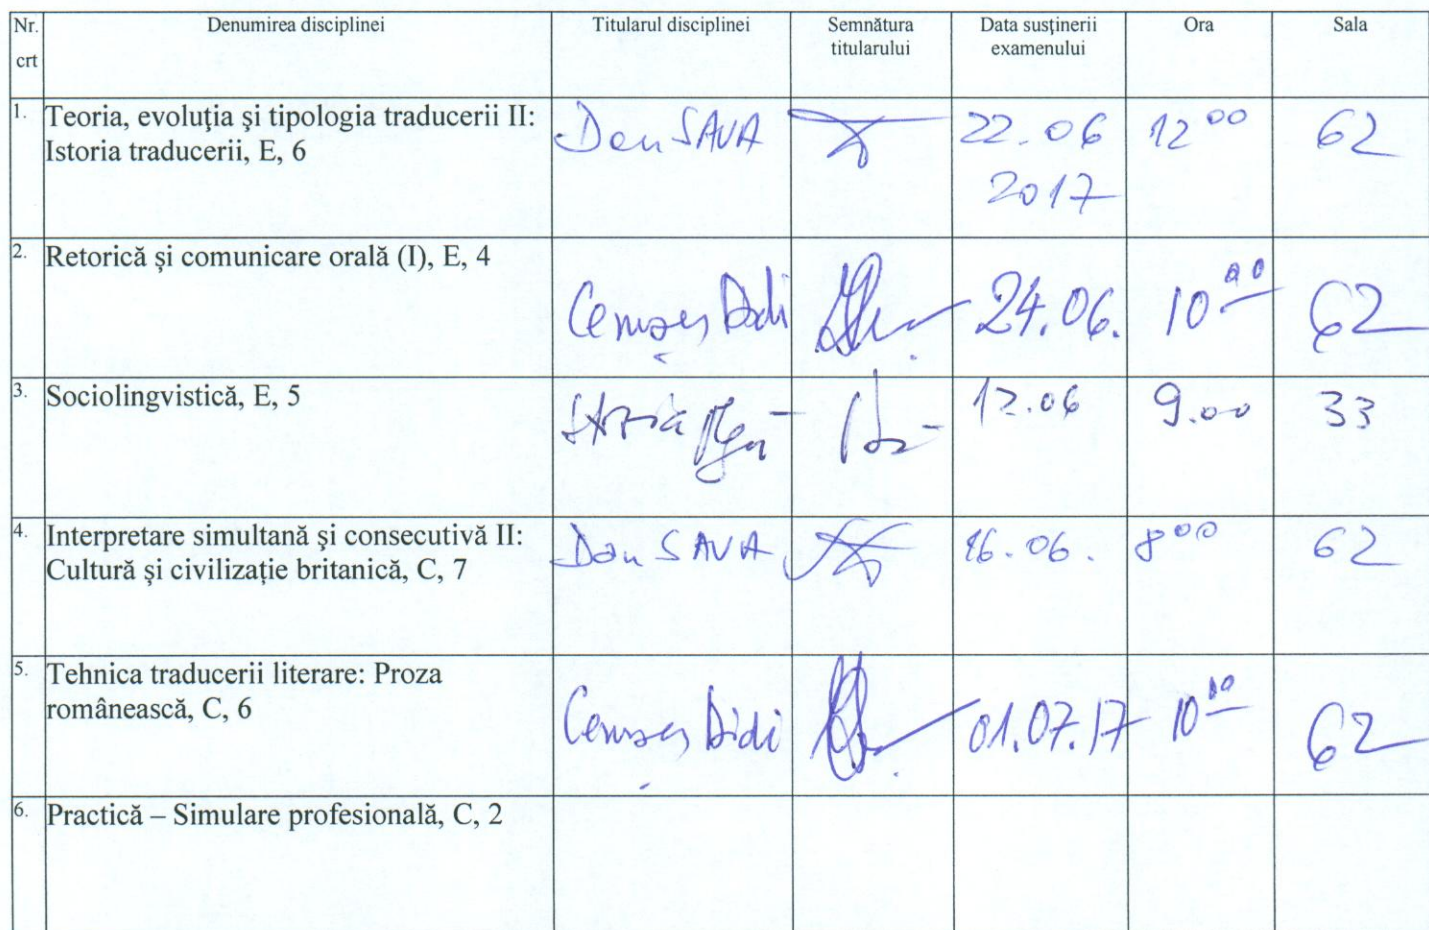 Nr. crt
Denumirea disciplinei
Titularul disciplinei
Semnătura titularului
Data susținerii examenului
Ora
Sala
1.
Teoria, evoluţia şi tipologia traducerii II:
Istoria traducerii, E, 6
Dan SAVA
22.06
2017
12 00
62
2.
Retorică și comunicare orală (I), E, 4
Didi
24.06.
10 00
62
3.
Sociolingvistică, E, 5
12.06
9.00
33
4.
Interpretare simultană şi consecutivă II:
Cultură și civilizație britanică, C, 7
Dan SAVA
16.06.
8 00
62
5.
Tehnica traducerii literare: Proza
românească, C, 6
Didi
01.07.17
10 00
62
6.
Practică – Simulare profesională, C, 2